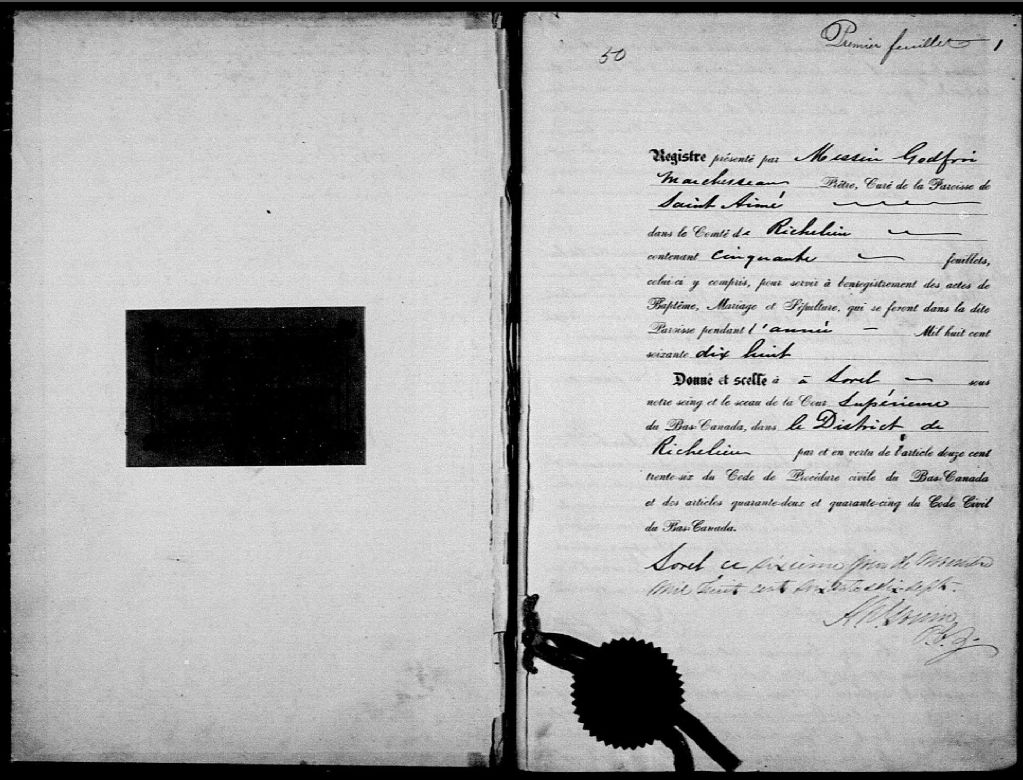 Premier feuillet 1
50
Registre présenté par Messire Godfroi
Marchesseau Prêtre, Curé de la Paroisse de
Saint Aimé
dans le Comté de Richelieu
contenant cinquante feuillets,
celui-ci y compris, pour servir à l'enregistrement des actes de
Baptême, Mariage et Sépulture, qui se feront dans la dite
Paroisse pendant l'année Mil huit cent
soixante dix huit
Donné et scellé à à Sorel sous
notre seing et le sceau de la Cour Supérieure
du Bas-Canada, dans le District de
Richelieu par et en vertu de l'article douze cent
trente-six du Code de Procédure civile du Bas-Canada
et des articles quarante-deux et quarante-cinq du Code Civil
du Bas-Canada.
Sorel ce sixième jour de Novembre
mil huit cent soixante dix-sept.